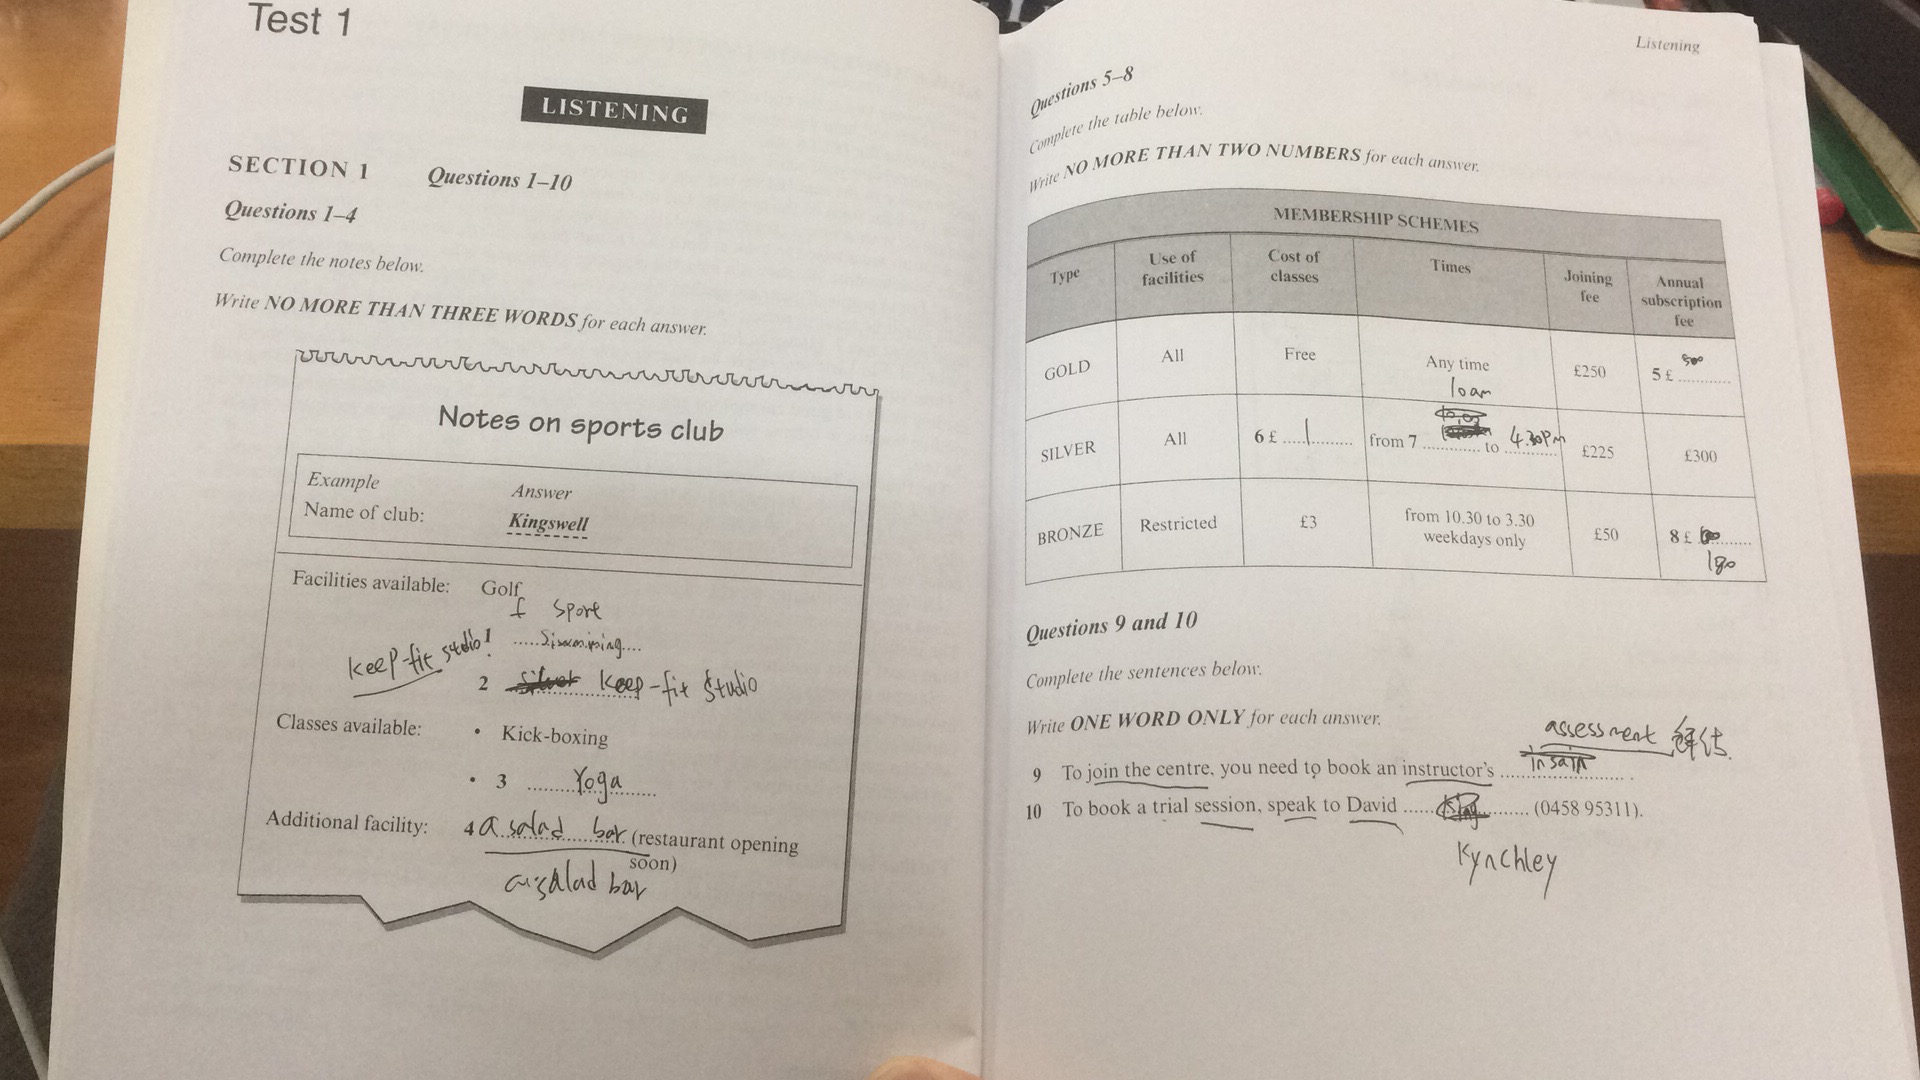 Test 1
LISTENING
SECTION 1 Questions 1–10
Questions 1–4
Complete the notes below.
Write NO MORE THAN THREE WORDS for each answer.
Notes on sports club
Example Answer
Name of club: Kingswell
Facilities available: Golf
sport
keep-fit studio
1
2 keep-fit studio
Classes available: • Kick-boxing
• 3 Yoga
Additional facility: 4 a salad bar (restaurant opening
soon)
salad bar
Listening
Questions 5–8
Complete the table below.
Write NO MORE THAN TWO NUMBERS for each answer.
MEMBERSHIP SCHEMES
Type Use of facilities Cost of classes Times Joining fee Annual subscription fee
GOLD All Free Any time £250 5 £ 500
10am
SILVER All 6 £ 1 from 7 to 4.30pm £225 £300
BRONZE Restricted £3 from 10.30 to 3.30 weekdays only £50 8 £
180
Questions 9 and 10
Complete the sentences below.
Write ONE WORD ONLY for each answer.
assessment
9 To join the centre, you need to book an instructor's .
10 To book a trial session, speak to David (0458 95311).
Kynchley